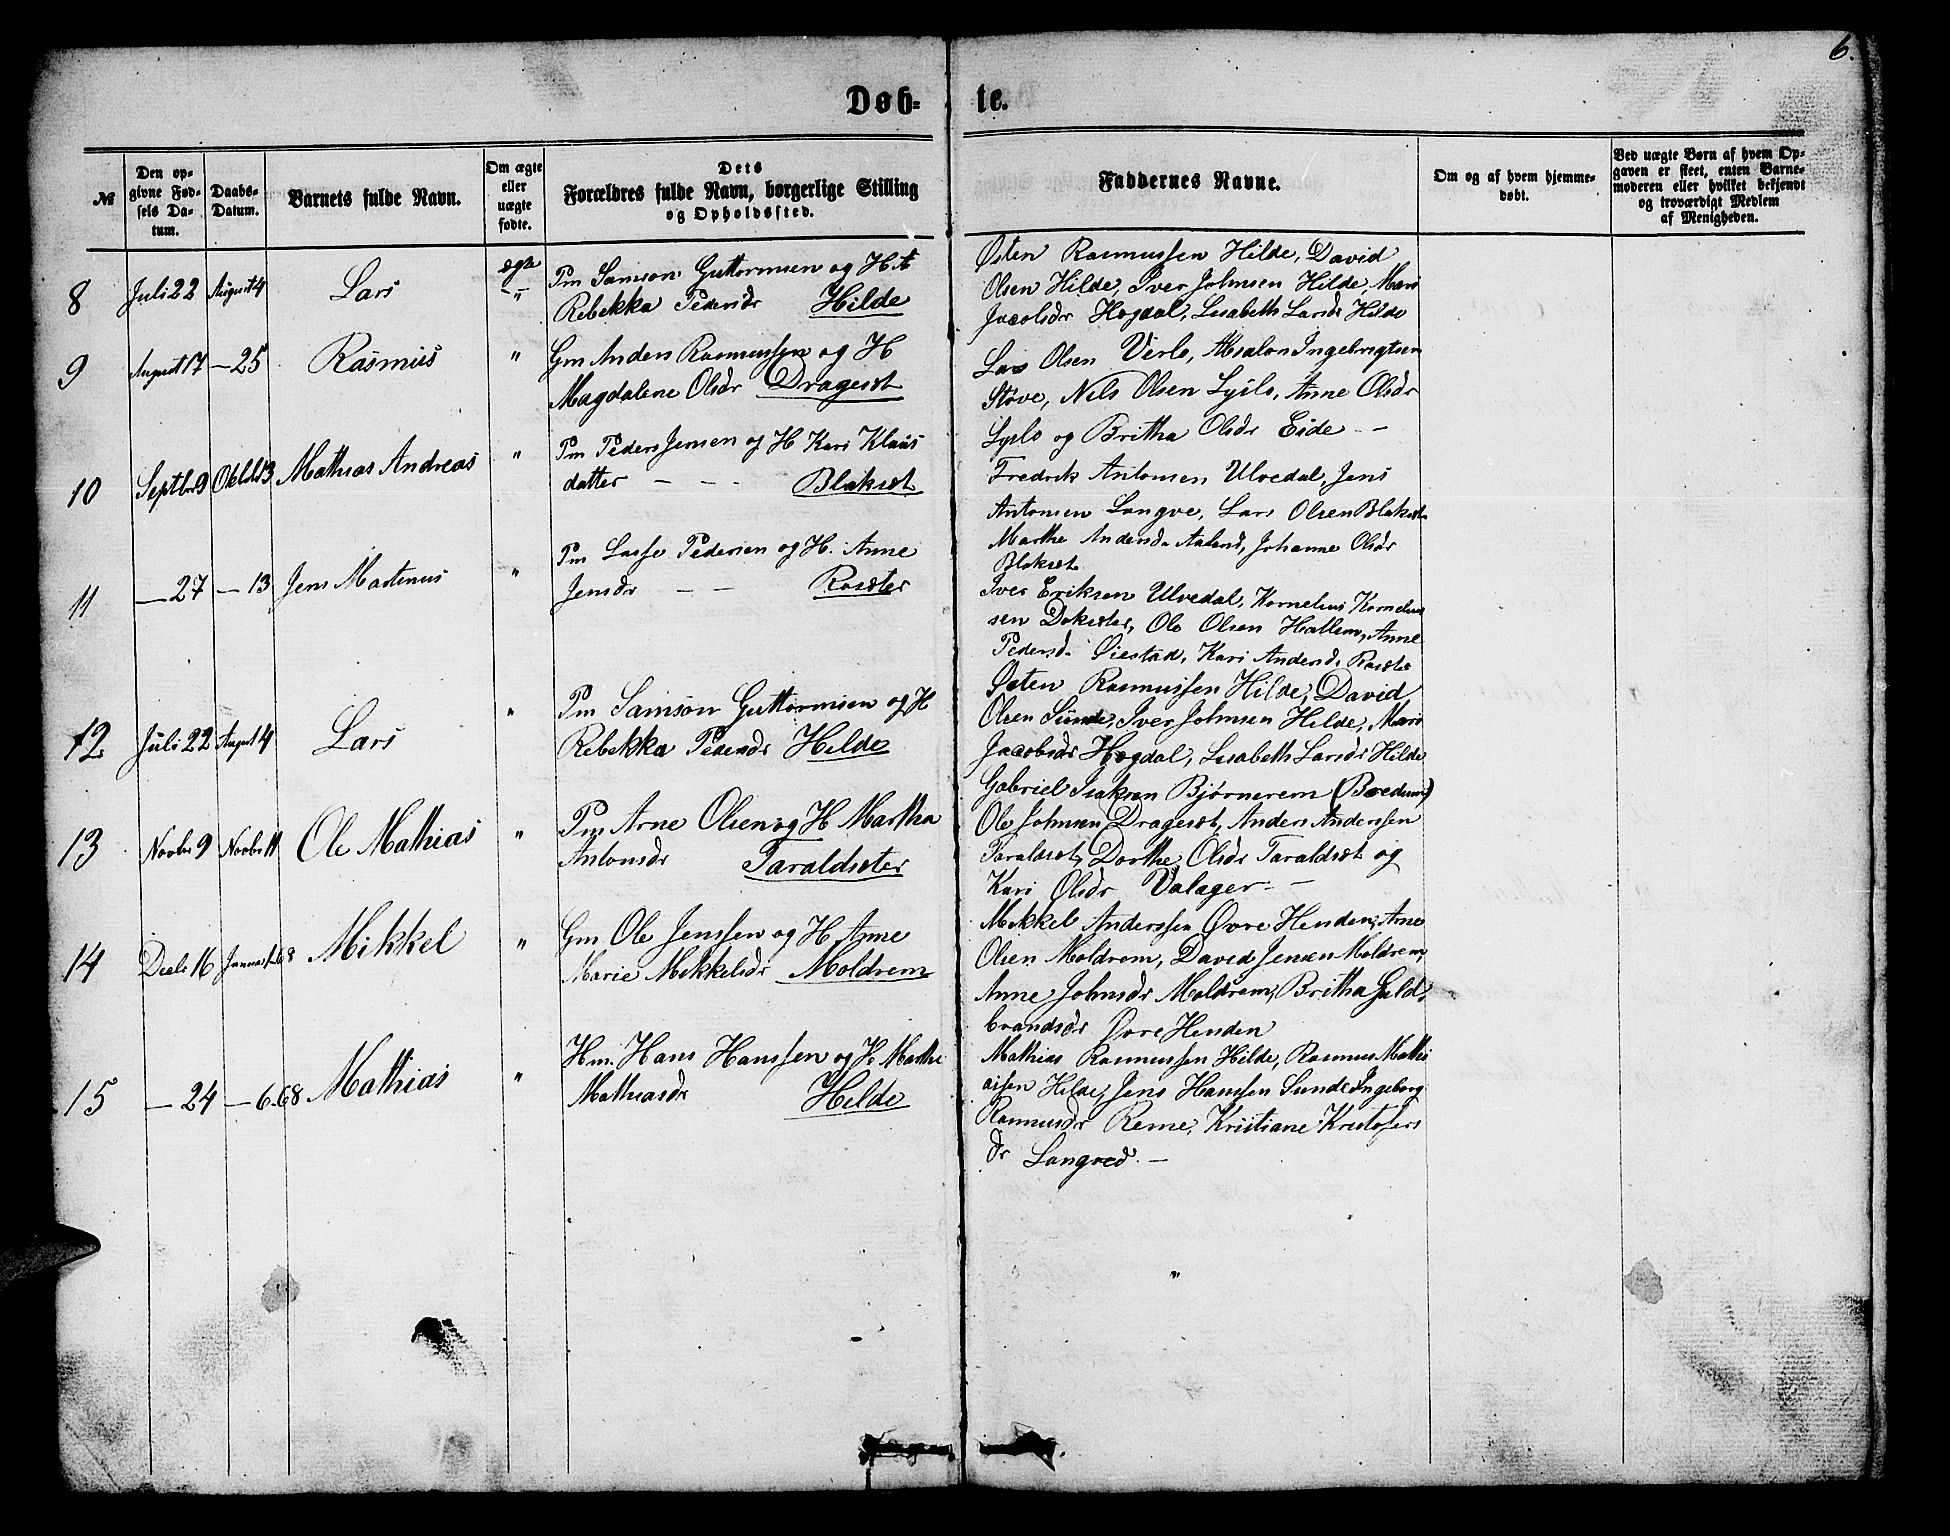 6.
Døb-te.
№
Den opgivne Fødsels Datum.
Daabs-Datum.
Barnets fulde Navn.
Om ægte eller uægte fødte.
Dets Forældres fulde Navn, borgerlige Stilling og Opholdssted.
Faddernes Navne.
Om og af hvem hjemmedøbt.
Ved uægte Børn af hvem Opgaven er skeet, enten Barnemoderen eller hvilket bekjendt og troværdigt Medlem af Menigheden.
8 Juli 22 August 4 Lars ægte -"-
Pm Samson Guttormsen og H
Rebekka Pedersdr Hilde
Østen Rasmussen Hilde, David
Olsen Hilde, Iver Johnsen Hilde, Mari
Jacobsdr Hogdal, Lisabeth Larsdr Hilde
9 August 17 — 25 Rasmus "
Gm Anders Rasmussen og H
Magdalene Olsdr Drageset
Lars Olsen Verlo, Absalon Ingebrigtsen
Støve, Nils Olsen Lyslo, Anne Olsdr
Lyslo og Britha Olsdr Eide - -
10 Septbr 9 Oktbr 13 Mathias Andreas "
Pm Peder Jensen og H Kari Klaus
datter - - - Blakset
Fredrik Antonsen Ulvedal, Jens
Antonsen Langve, Lars Olsen Blakset
Marthe Andersd. Aaland, Johanne Olsdr
Blakset
11 — 27 — 13 Jens Martinus "
Pm Lasse Pedersen og H. Anne
Jensdr - - Rosæter
Iver Eriksen Ulvedal, Kornelius Kornelius
sen Dokæter, Ole Olsen Hallem, Anne
Pedersd. Øiestad, Kari Andersd. Rosæter
12 Juli 22 August 4 Lars "
Pm Samson Guttormsen og H
Rebekka Pedersdr Hilde
Østen Rasmussen Hilde, David
Olsen Sunde, Iver Johnsen Hilde, Mari
Jacobsdr Hogdal, Lisabeth Larsdr Hilde
13 Novbr 9 Novbr 11 Ole Mathias "
Pm Arne Olsen og H Martha
Antonsdr Taraldsæter
Gabriel Isaksen Bjørnerem (Boedum)
Ole Johnsen Drageset, Anders Anderssen
Taraldset, Dorthe Olsdr Taraldset og
Kari Olsdr Valager. -
14 Decbr 16 Januar 1-68 Mikkel "
Gm Ole Jenssen og H Anne
Marie Mikkelsdr Moldrem
Mikkel Anderssen Øvre Henden, Arne
Olsen Moldrem, David Jensen Moldrem,
Anne Johnsdr Moldrem, Britha Guld-
brandsdr Øvre Henden
15 — 24 — 6.68 Mathias "
Hm. Hans Hanssen og H. Marthe
Mathiasdr Hilde
Mathias Rasmussen Hilde, Rasmus Mathi
assen Hilde, Jens Hanssen Sunde, Ingeborg
Rasmusdr Reme, Kristiane Kristofers
dr Langved. —